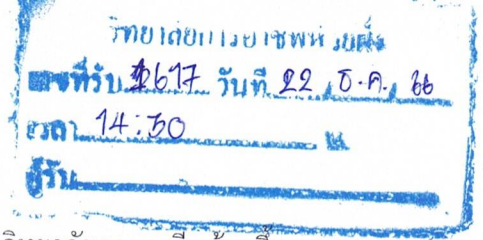 วิทยาลัยการอาชีพห้วยผึ้ง
เลขที่รับ 2617 วันที่ 22 ธ.ค. 66
เวลา 14:50 น.
ผู้รับ